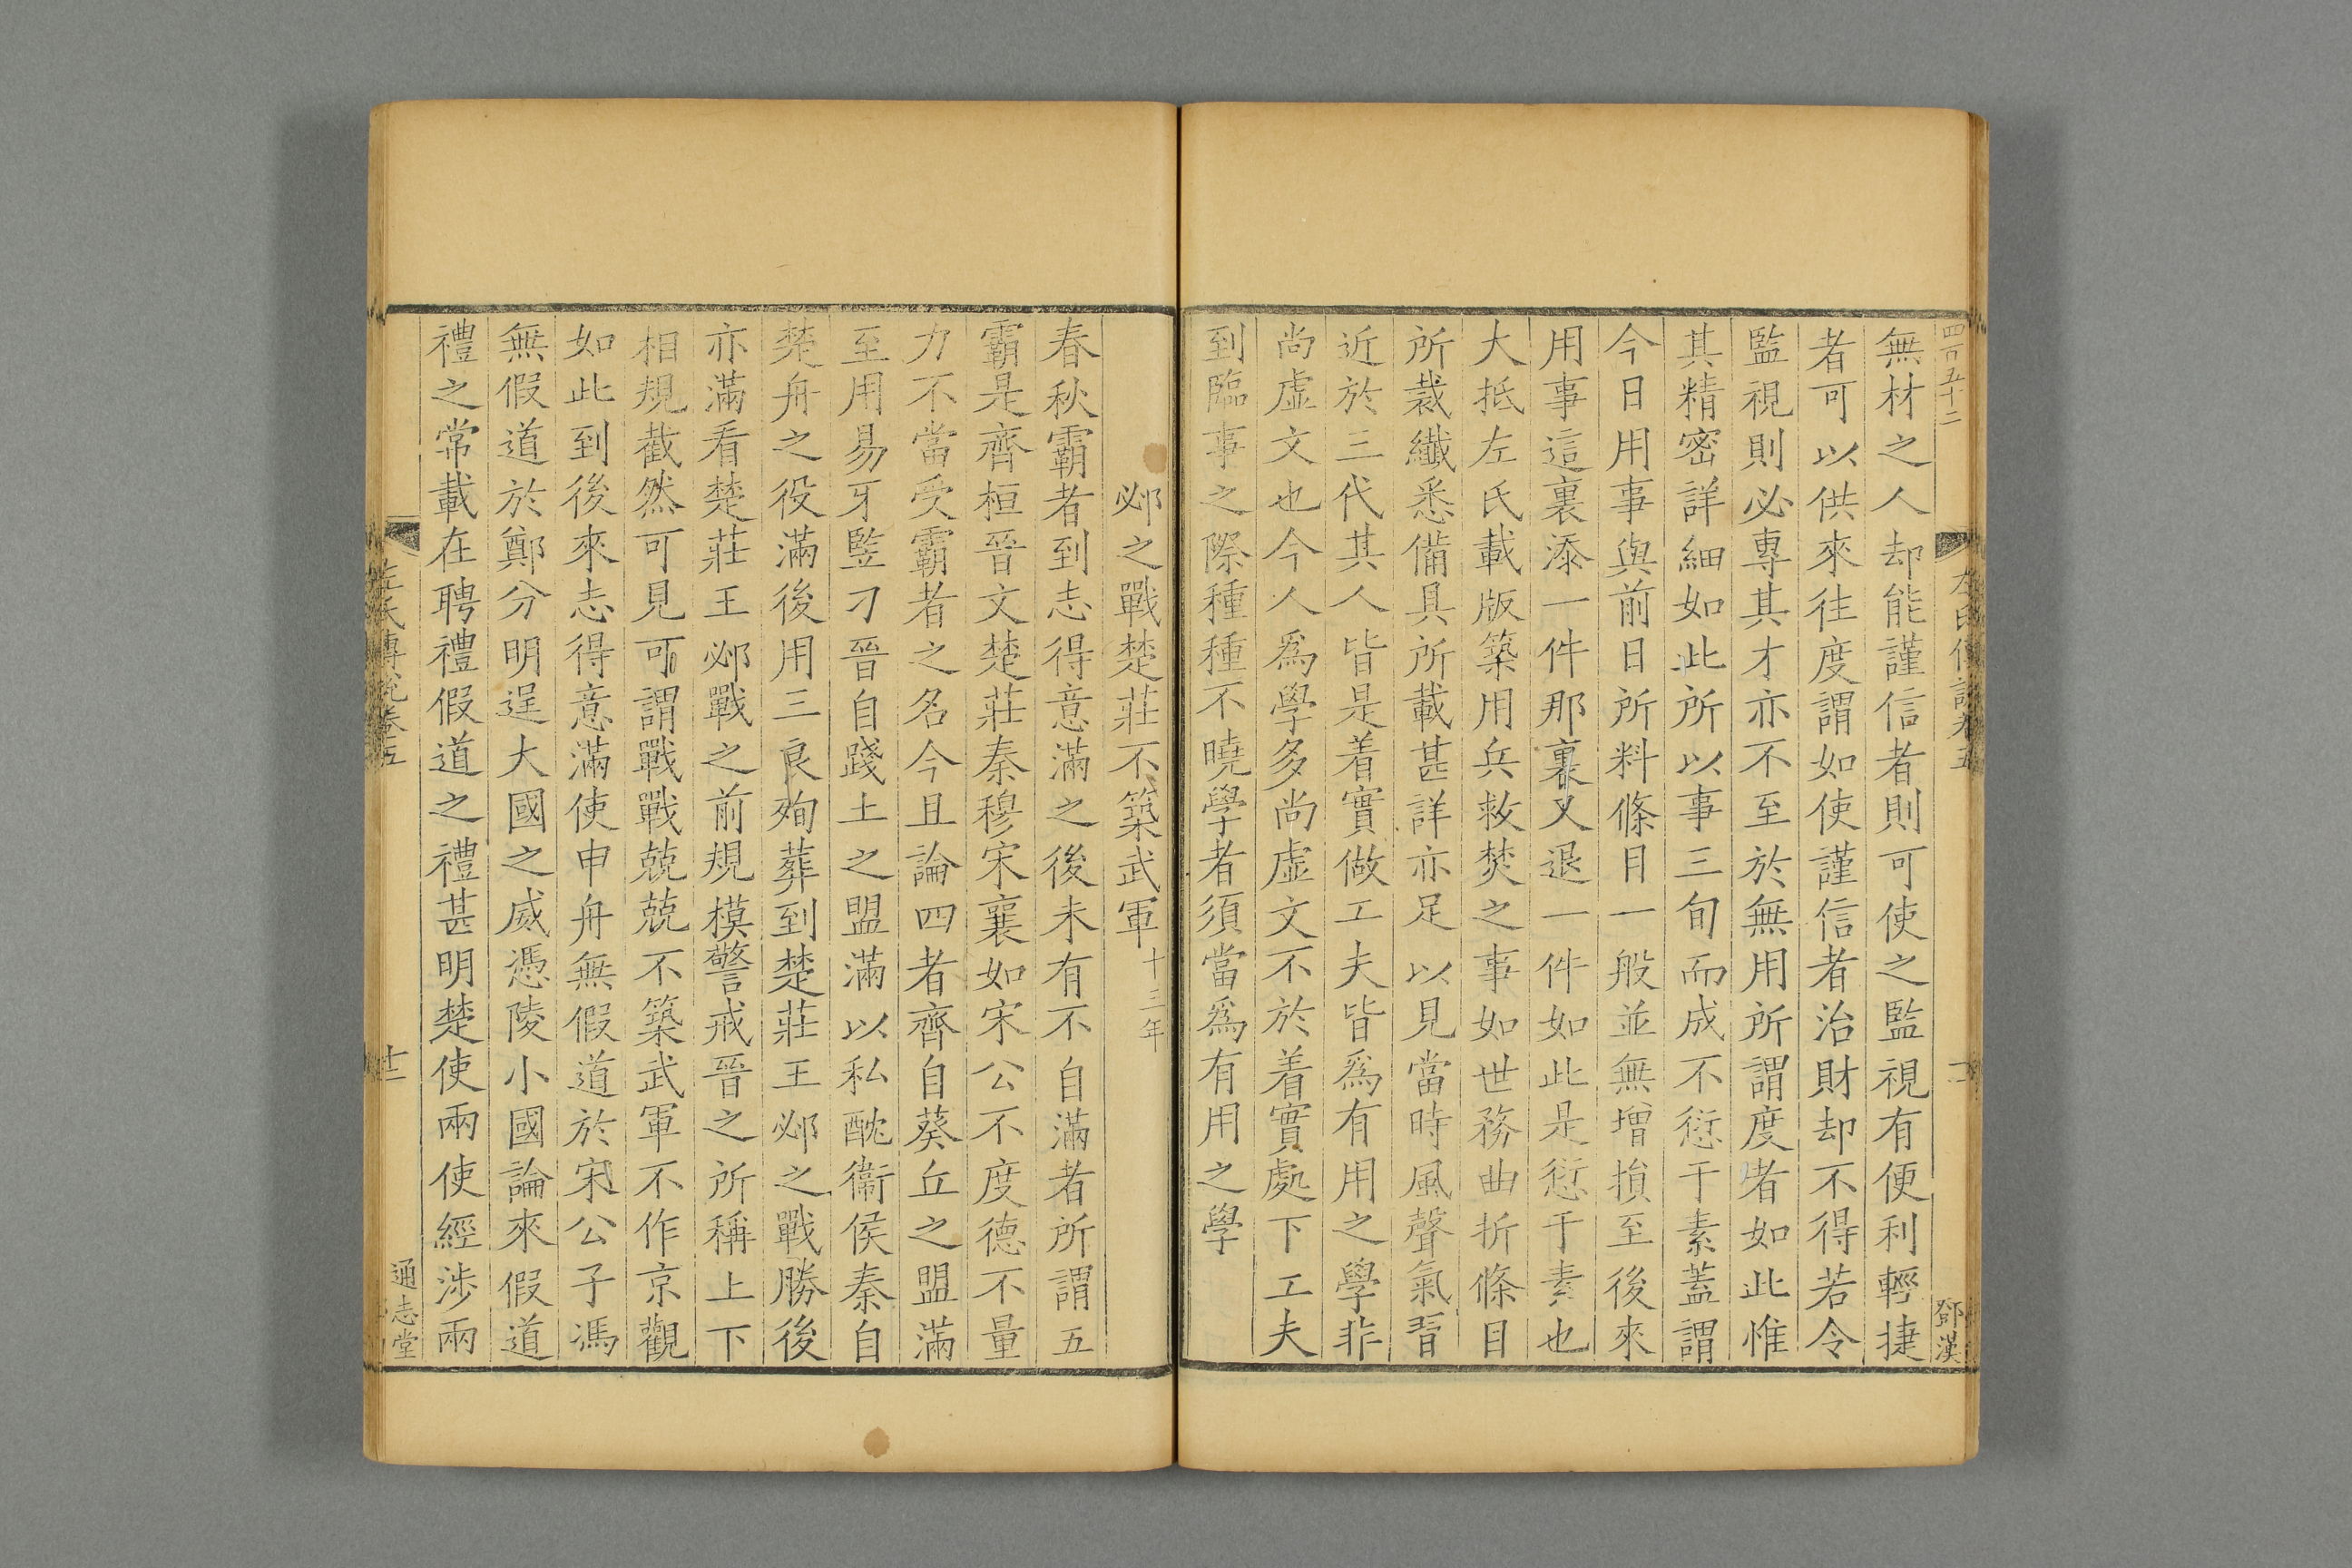 四百五十二
鄧漢
無材之人却能謹信者則可使之監視有便利輕捷
者可以供來往度謂如使謹信者治財却不得若令
監視則必專其才亦不至於無用所謂度者如此惟
其精密詳細如此所以事三旬而成不愆于素蓋謂
今日用事與前日所料條目一般並無增損至後來
用事這裏添一件那裏又退一件如此是愆于素也
大抵左氏載版築用兵救焚之事如世務曲折條目
所裁纖悉備具所載甚詳亦足以見當時風聲氣習
近於三代其人皆是着實做工夫皆爲有用之學非
尚虛文也今人爲學多尚虛文不於着實處下工夫
到臨事之際種種不曉學者須當爲有用之學
邲之戰楚莊不築武軍十三年
春秋霸者到志得意滿之後未有不自滿者所謂五
霸是齊桓晉文楚莊秦穆宋襄如宋公不度德不量
力不當受霸者之名今且論四者齊自葵丘之盟滿
至用易牙豎刁晉自踐土之盟滿以私酖衞侯秦自
焚舟之役滿後用三良殉葬到楚莊王邲之戰勝後
亦滿看楚莊王邲戰之前規模警戒晉之所稱上下
相規截然可見可謂戰戰兢兢不築武軍不作京觀
如此到後來志得意滿使申舟無假道於宋公子馮
無假道於鄭分明逞大國之威憑陵小國論來假道
禮之常載在聘禮假道之禮甚明楚使兩使經涉兩
左氏傳說卷五
十二
通志堂